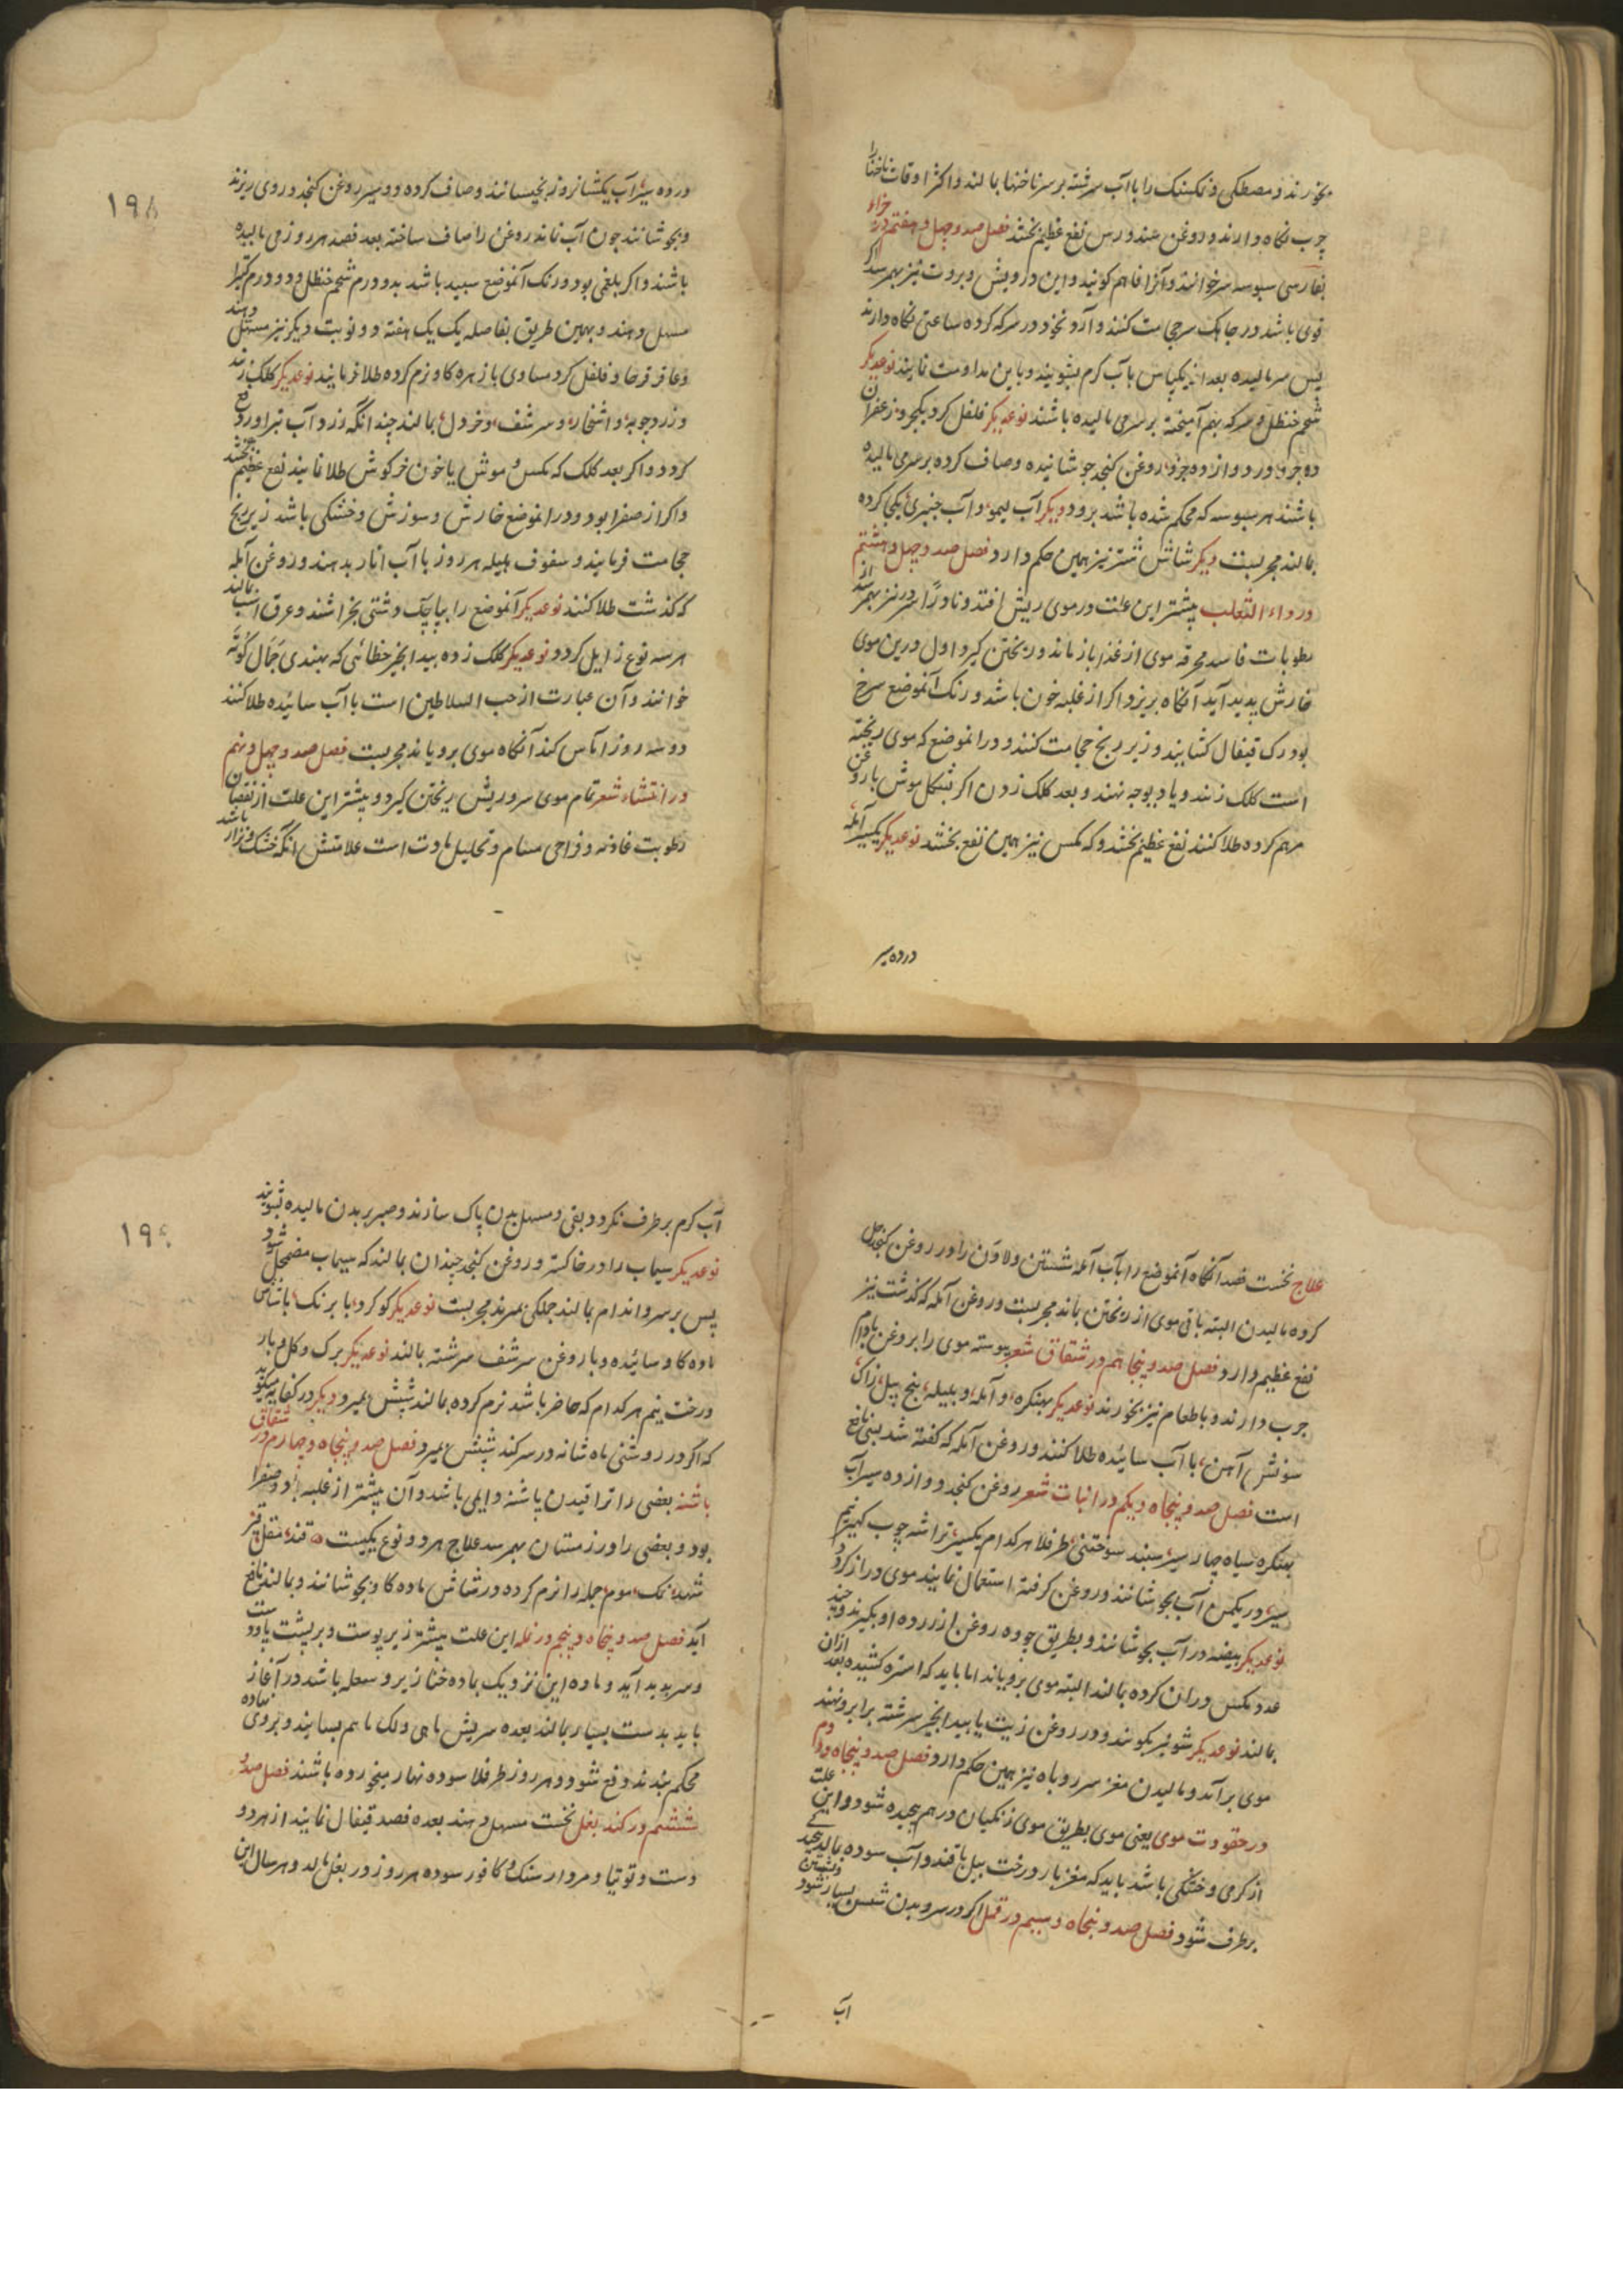 بخورند و مصطکی و نمکسنک را با آب سرشته بر سر ناخنها بمالند و اکثر اوقات ناخنها را
چرب نکاه دارند و روغن عند ورس نفع عظیم بخشد فصل صد و چهل و هفتم در حزاز
بفارسی سبوسه سر خوانند و آنرا فاهم کویند و این در ریش و بروت نیز بهمرسد اکر
قوی باشد در حا یک سر حجامت کنند و آرد نخود در سرکه کرده ساعتی نکاه دارند
پس سر مالیده بعد از یکپاس با آب کرم بشویند و باین مداومت نمایند نوعدیکر
شحم حنظل و سرکه بهم آمیخته بر سر می مالیده باشند نوعدیکر فلفل کرد یکجزو زعفران
ده جزو در دوازده جزو روغن کنجد جوشانیده و صاف کرده بر سر می مالیده
باشند هر سبوسه که محکم شده باشد برود دیکر آب لیمو و آب جنبری یکجا کرده
بمالند مجربست دیکر شاش شتر نیز همین حکم دارد فصل صد و چهل و هشتم
در داء الثعلب بیشتر این علت در موی ریش افتد و نادرًا در سر نیز بهمرسد از
رطوبات فاسد محرقه موی از غذا باز ماند و ریختن کیرد اول در بن موی
خارش پدید آید آنکاه بریزد اکر از غلبه خون باشد و رنک آنموضع سرخ
بود رک قیفال کشایند و زیر زنخ حجامت کنند و در انموضع که موی ریخته
است کلک زنند و یا دیوچه نهند و بعد کلک زدن اکر پشکل موش با روغن
مرهم کرده طلا کنند نفع عظیم بخشد و که مکس نیز همین نفع بخشد نوعدیکر یکسیر آمله
در ده سیر
۱۹۸
در ده سیر آب یکشبانروز بخیسانند و صاف کرده دو سیر روغن کنجد در وی ریزند
و بجوشانند چون آب نماند روغن را صاف ساخته بعد فصد هر روز می مالیده
باشند و اکر بلغمی بود و رنک آنموضع سپید باشد بدو درم شحم حنظل و دو درم کتیرا
مسهل دهند و بهمین طریق بفاصله یک یک هفته دو نوبت دیکر نیز مسهل دهند
و عاقرقرحا و فلفل کرد مساوی با زهره کاو نرم کرده طلا فرمایند نوعدیکر کلک زنند
و زردچوبه و اشخار و سرشف و خردل بمالند چندانکه زردآب تراود دفع
کردد و اکر بعد کلک که مکس و موش یا خون خرکوش طلا نمایند نفع عظیم بخشد
و اکر از صفرا بود و در انموضع خارش و سوزش و خشکی باشد زیر زنخ
حجامت فرمایند و سفوف هلیله هر روز با آب انار بدهند و روغن آمله
که کذشت طلا کنند نوعدیکر آنموضع را بپاچک دشتی بخراشند و عرق اسب بمالند
هر سه نوع زایل کردد نوعدیکر کلک زده بیدانجیر خطائی که بهندی جمال کوته
خوانند و آن عبارت از حب السلاطین است با آب سائیده طلا کنند
دو سه روز آماس کند آنکاه موی برویاند مجربست فصل صد و چهل و نهم
در انتشاء شعر تمام موی سر و ریش ریختن کیرد و بیشتر این علت از نقصان
رطوبت غاذیه و فراخی مسام و تحلیل مادت است علامتش آنکه خشک و نزار باشد
علاج نخست فصد آنکاه آنموضع را بآب آمله شستن و لادن را در روغن کنجد حل
کرده مالیدن البته باقی موی از ریختن بماند مجربست و روغن آمله که کذشت نیز
نفع عظیم دارد فصل صد و پنجاهم در شقاق شعر پیوسته موی را بروغن بادام
چرب دارند و با طعام نیز بخورند نوعدیکر بهنکره و آمله و بلیله بیخ پیپل زاک
سونش آهن با آب سائیده طلا کنند و روغن آمله که کفته شد بسی نافع
است فصل صد و پنجاه و یکم در انبات شعر روغن کنجد دوازده سیر آب
بهنکره سیاه چار سیر سپند سوختنی طرفلا هر کدام یکسیر تراشه چوب کهیر نیم
سیر در یکمن آب بجوشانند و روغن کرفته استعمال نمایند موی دراز کردد
نوعدیکر بیضه در آب بجوشانند و بطریق چوه روغن از زرده او بکیرند و چند
عدد مکس دران کرده بمالند البته موی برویاند اما باید که استره کشیده بعد ازان
بمالند نوعدیکر شونیز بکوبند و در روغن زیت یا بیدانجیر سرشته بر ابرو نهند
موی برآید و مالیدن مغز سر روباه نیز همین حکم دارد فصل صد و پنجاه و دوم
در حقودت موی یعنی موی بطریق موی زنکیان در هم پیچیده شود و این علت
از کرمی و خشکی باشد باید که مغز بار درخت بیل با قند و آب سوده بمالند
برطرف شود فصل صد و پنجاه و سیم در قمل اکر در سر و بدن شپش بسیار شود
آب
۱۹۹
آب کرم برطرف نکردد بقی و مسهل بدن پاک سازند و صبر بر بدن مالیده بشویند
نوعدیکر سیماب را در خاکستر و روغن کنجد چندان بمالند که سیماب مضمحل شود
پس بر سر و اندام بمالند جملکی بمیرند مجربست نوعدیکر کوکرد با برنک با شاش
ماده کاو سائیده و با روغن سرشف سرشته بمالند نوعدیکر برک و کل و بار
درخت نیم هر کدام که حاضر باشد نرم کرده بمالند شپش بمیرد دیکر در کفایه میکوید
که اکر در روشنی ماه شانه در سر کند شپش بمیرد فصل صد و پنجاه و چهارم در شقاق
پاشنه بعضی را ترا قیدن پاشنه دایمی باشد و آن بیشتر از غلبه باد و صفرا
بود و بعضی را در زمستان بهمرسد علاج هر دو نوع یکیست قند مقل قیر
شهد نمک موم جمله را نرم کرده در شاش ماده کاو بجوشانند و بمالند نافع
آید فصل صد و پنجاه و پنجم در نمله این علت بیشتر زیر پوست و بر پشت یا دو
و سر پدید آید و ماده این نزدیک بماده خنازیر و سعله باشد در آغاز
باید بدست بسیار بمالند بعده سریش ماهی و لک با هم بسایند و بر وی نهاده
محکم بندند دفع شود و هر روز طرفلا سوده نهار میخورده باشند فصل صد و
ششم در کند بغل نخست مسهل دهند بعده فصد قیفال نمایند از هر دو
دست و توتیا و مردار سنک و کافور سوده هر روز در بغل مالد و هر سال این